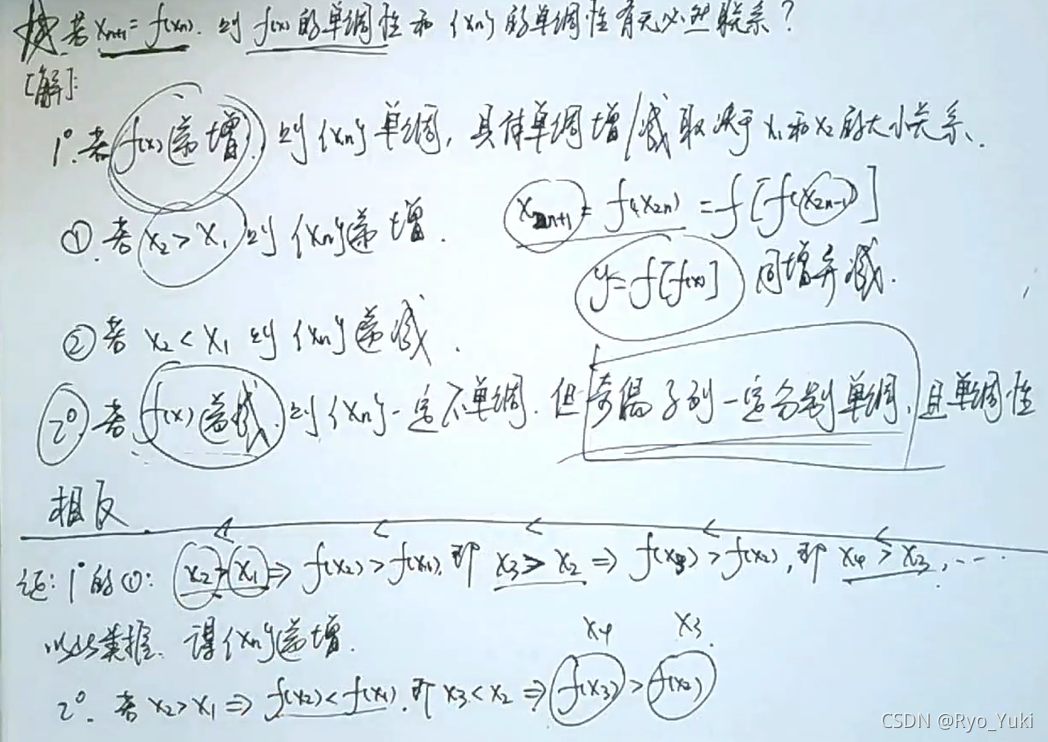 若 xn+1 = f(xn). 则 f(x) 的单调性和 {xn} 的单调性有无必然联系?
[解]:
1°. 若 f(x) 递增, 则 {xn} 单调, 具体单调增/减取决于 x1 和 x2 的大小关系.
① 若 x2 > x1 则 {xn} 递增.
x2n+1 = f(x2n) = f[f(x2n-1)]
y = f[f(x)] 同增异减.
② 若 x2 < x1 则 {xn} 递减.
2°. 若 f(x) 递减. 则 {xn} 一定不单调. 但奇偶子列一定分别单调, 且单调性
相反.
证: 1° 的①: x2 > x1 ⇒ f(x2) > f(x1), 即 x3 > x2 ⇒ f(x3) > f(x2), 即 x4 > x3, ....
以此类推. 得 {xn} 递增.
x4 x3
2°. 若 x2 > x1 ⇒ f(x2) < f(x1). 即 x3 < x2 ⇒ f(x3) > f(x2)
CSDN @Ryo_Yuki